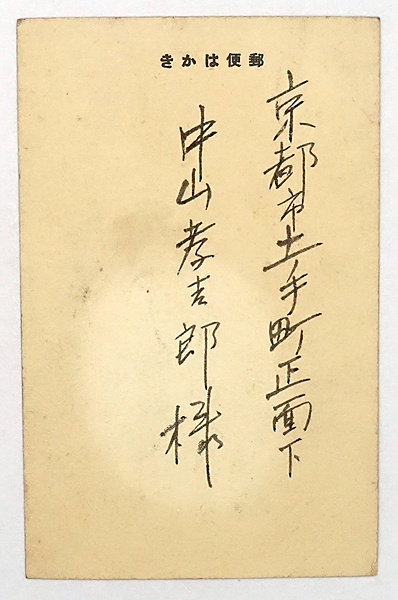 郵便はかき
京都市土手町正面下
中山孝吉郎様